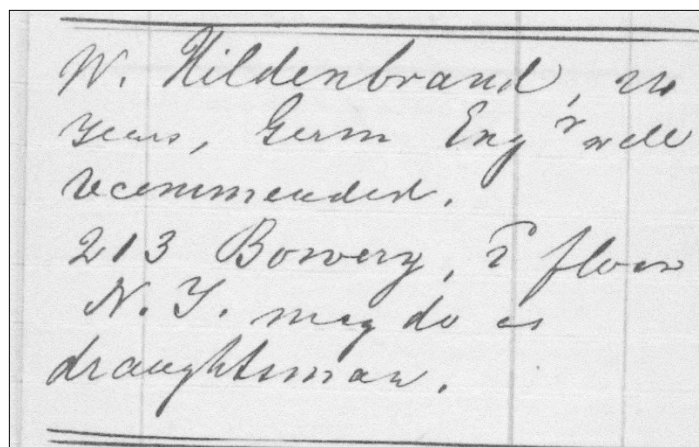 W. Hildenbrand, 24
years, Germ Engr well
recommended.
213 Bowery, 2 floor
N. Y. may do as
draughtsman.